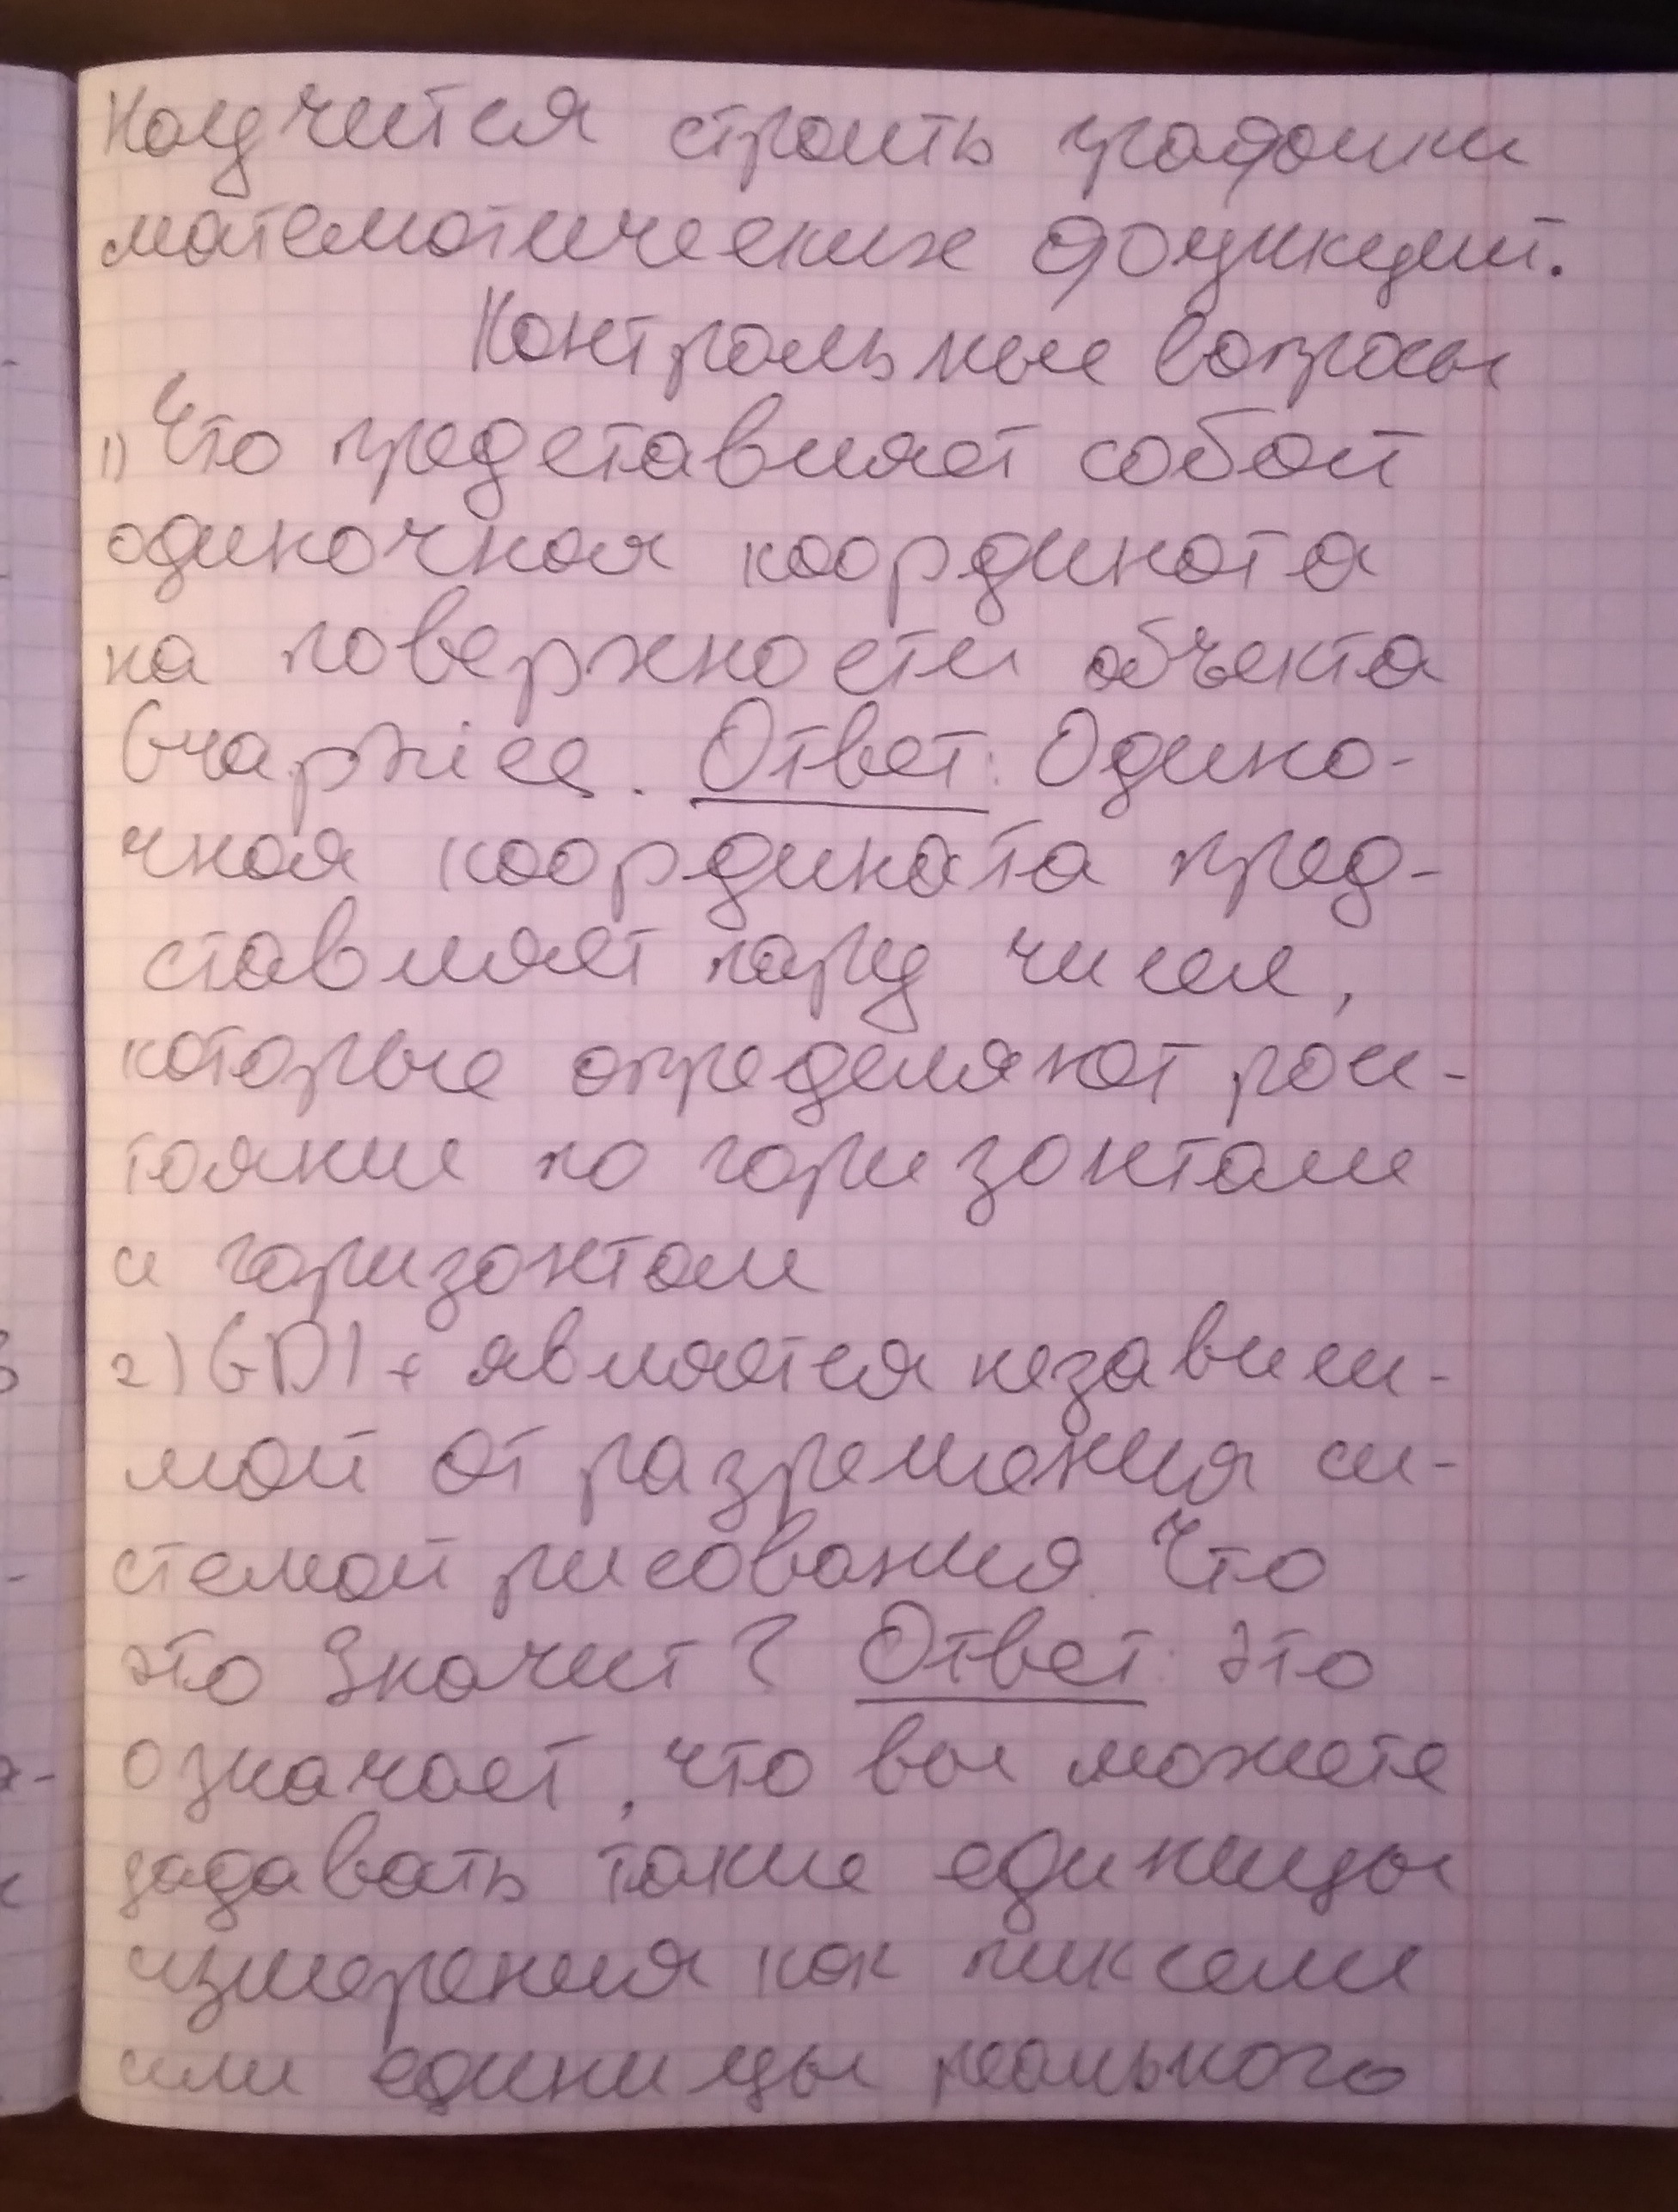 Научится строить графики
математических функций.
Контрольные вопросы
1) Что представляет собой
одиночная координата
на поверхности объекта
Graphics. Ответ: Одино-
чная координата пред-
ставляет пару чисел,
которые определяют рас-
тояние по горизонтали
и горизонтали
2) GDI+ является незавиcи-
мой от разрешения си-
стемой рисования. Что
это значит? Ответ: Это
означает, что вы можете
задавать такие единицы
измерения как пиксели
или единицы реального